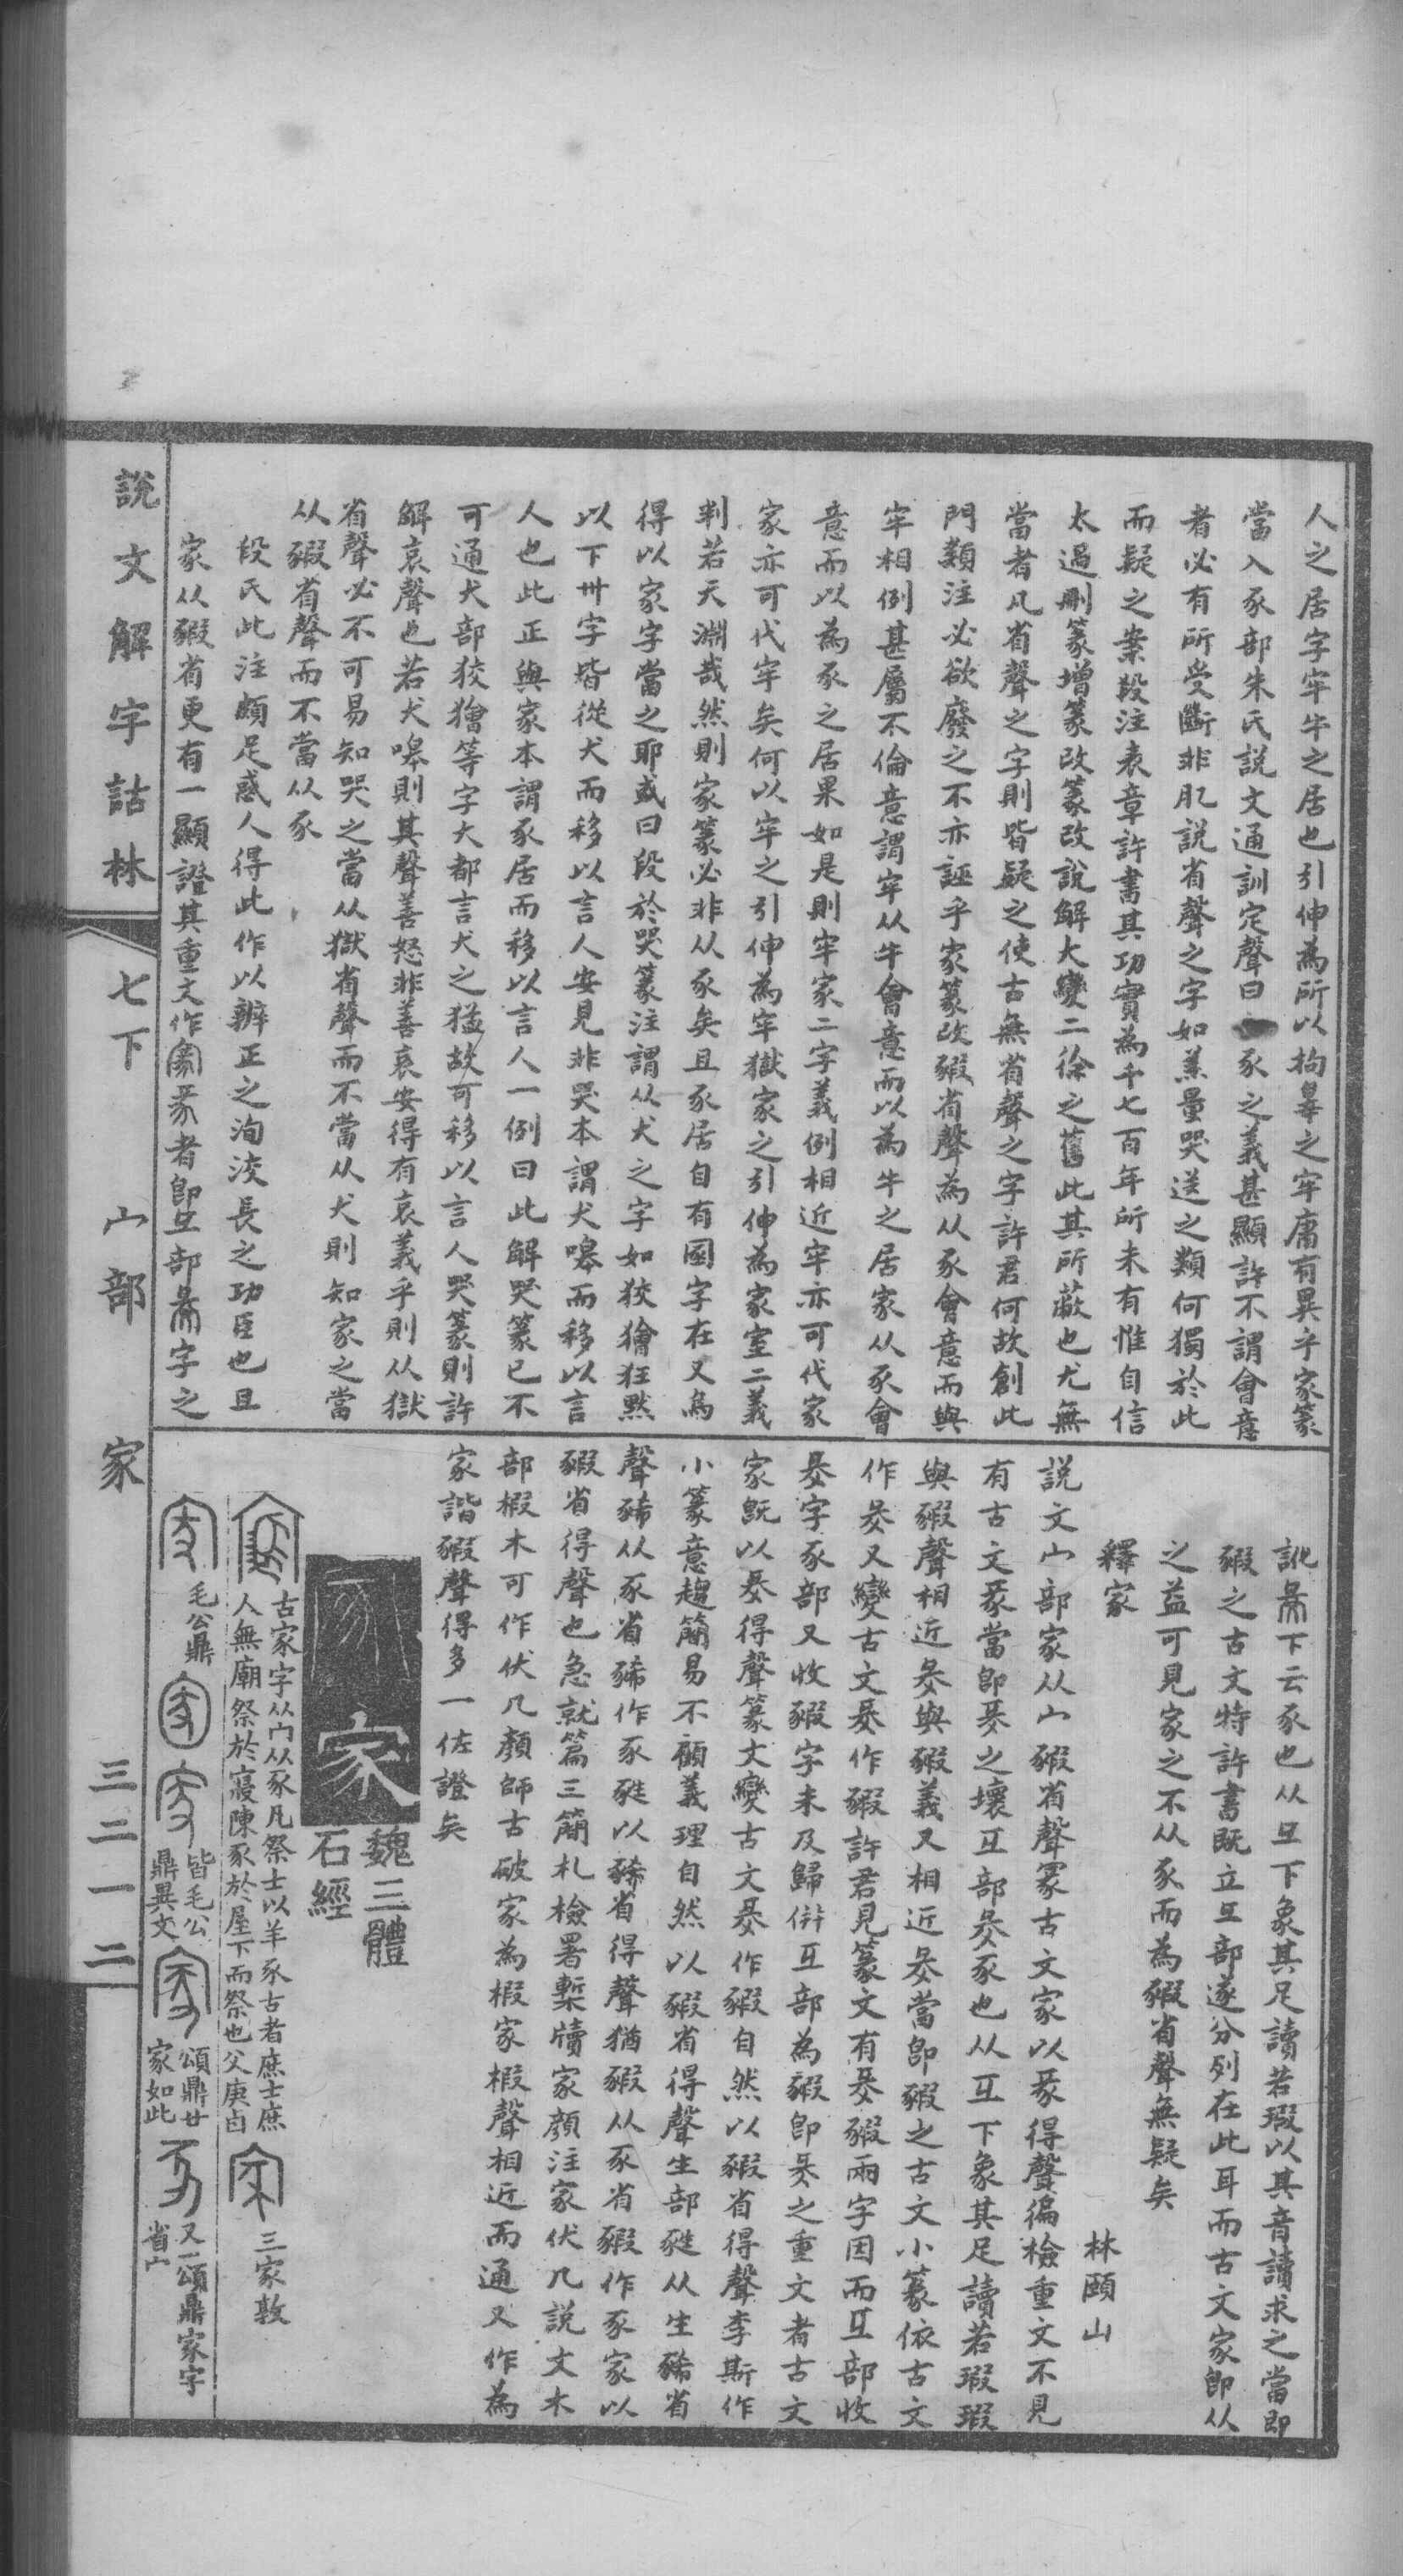 人之居字牢牛之居也引伸為所以拘辠之牢庸有異乎家篆
當入豕部朱氏說文通訓定聲曰豕之義甚顯許不謂會意
者必有所受斷非肊說省聲之字如羔量哭送之類何獨於此
而疑之案段注表章許書其功實為千七百年所未有惟自信
太過刪篆增篆改篆改說解大變二徐之舊此其所蔽也尤無
當者凡省聲之字則皆疑之使古無省聲之字許君何故創此
門類注必欲廢之不亦誣乎家篆改豭省聲為从豕會意而與
牢相例甚屬不倫意謂牢从牛會意而以為牛之居家从豕會
意而以為豕之居果如是則牢家二字義例相近牢亦可代家
家亦可代牢矣何以牢之引伸為牢獄家之引伸為家室二義
判若天淵哉然則家篆必非从豕矣且豕居自有圂字在又烏
得以家字當之耶或曰段於哭篆注謂从犬之字如狡獪狂默
以下卅字皆從犬而移以言人安見非哭本謂犬嘷而移以言
人也此正與家本謂豕居而移以言人一例曰此解哭篆已不
可通犬部狡獪等字大都言犬之猛故可移以言人哭篆則許
解哀聲也若犬嘷則其聲善怒非善哀安得有哀義乎則从獄
省聲必不可易知哭之當从獄省聲而不當从犬則知家之當
从豭省聲而不當从豕
段氏此注頗足惑人得此作以辨正之洵洨長之功臣也且
家从豭省更有一顯證其重文作豪者即彑部字之
訛下云豕也从彑下象其足讀若瑕以其音讀求之當即
豭之古文特許書既立彑部遂分列在此耳而古文家即从
之益可見家之不从豕而為豭省聲無疑矣
釋家
林頤山
說文宀部家从宀豭省聲古文家以得聲徧檢重文不見
有古文當即之壞彑部豕也从彑下象其足讀若瑕瑕
與豭聲相近與豭義又相近當即豭之古文小篆依古文
作又變古文作豭許君見篆文有豭兩字因而彑部收
字豕部又收豭字未及歸併彑部為豭即之重文者古文
家既以得聲篆文變古文作豭自然以豭省得聲李斯作
小篆意趨簡易不顧義理自然以豭省得聲生部㽔从生豨省
聲豨从豕省豨作豕㽔以豨省得聲猶豭从豕省豭作豕家以
豭省得聲也急就篇三簡札檢署槧牘家顏注家伏几說文木
部椵木可作伏几顏師古破家為椵家椵聲相近而通又作為
家諧豭聲得多一佐證矣
家
魏三體
石經
古家字从宀从豕凡祭士以羊豕古者庶士庶
人無廟祭於寢陳豕於屋下而祭也父庚卣
三家敦
毛公鼎
皆毛公
鼎異文
頌鼎廿
家如此
又一頌鼎家字
省宀
說文解字詁林
七下
宀部
家
三二一二